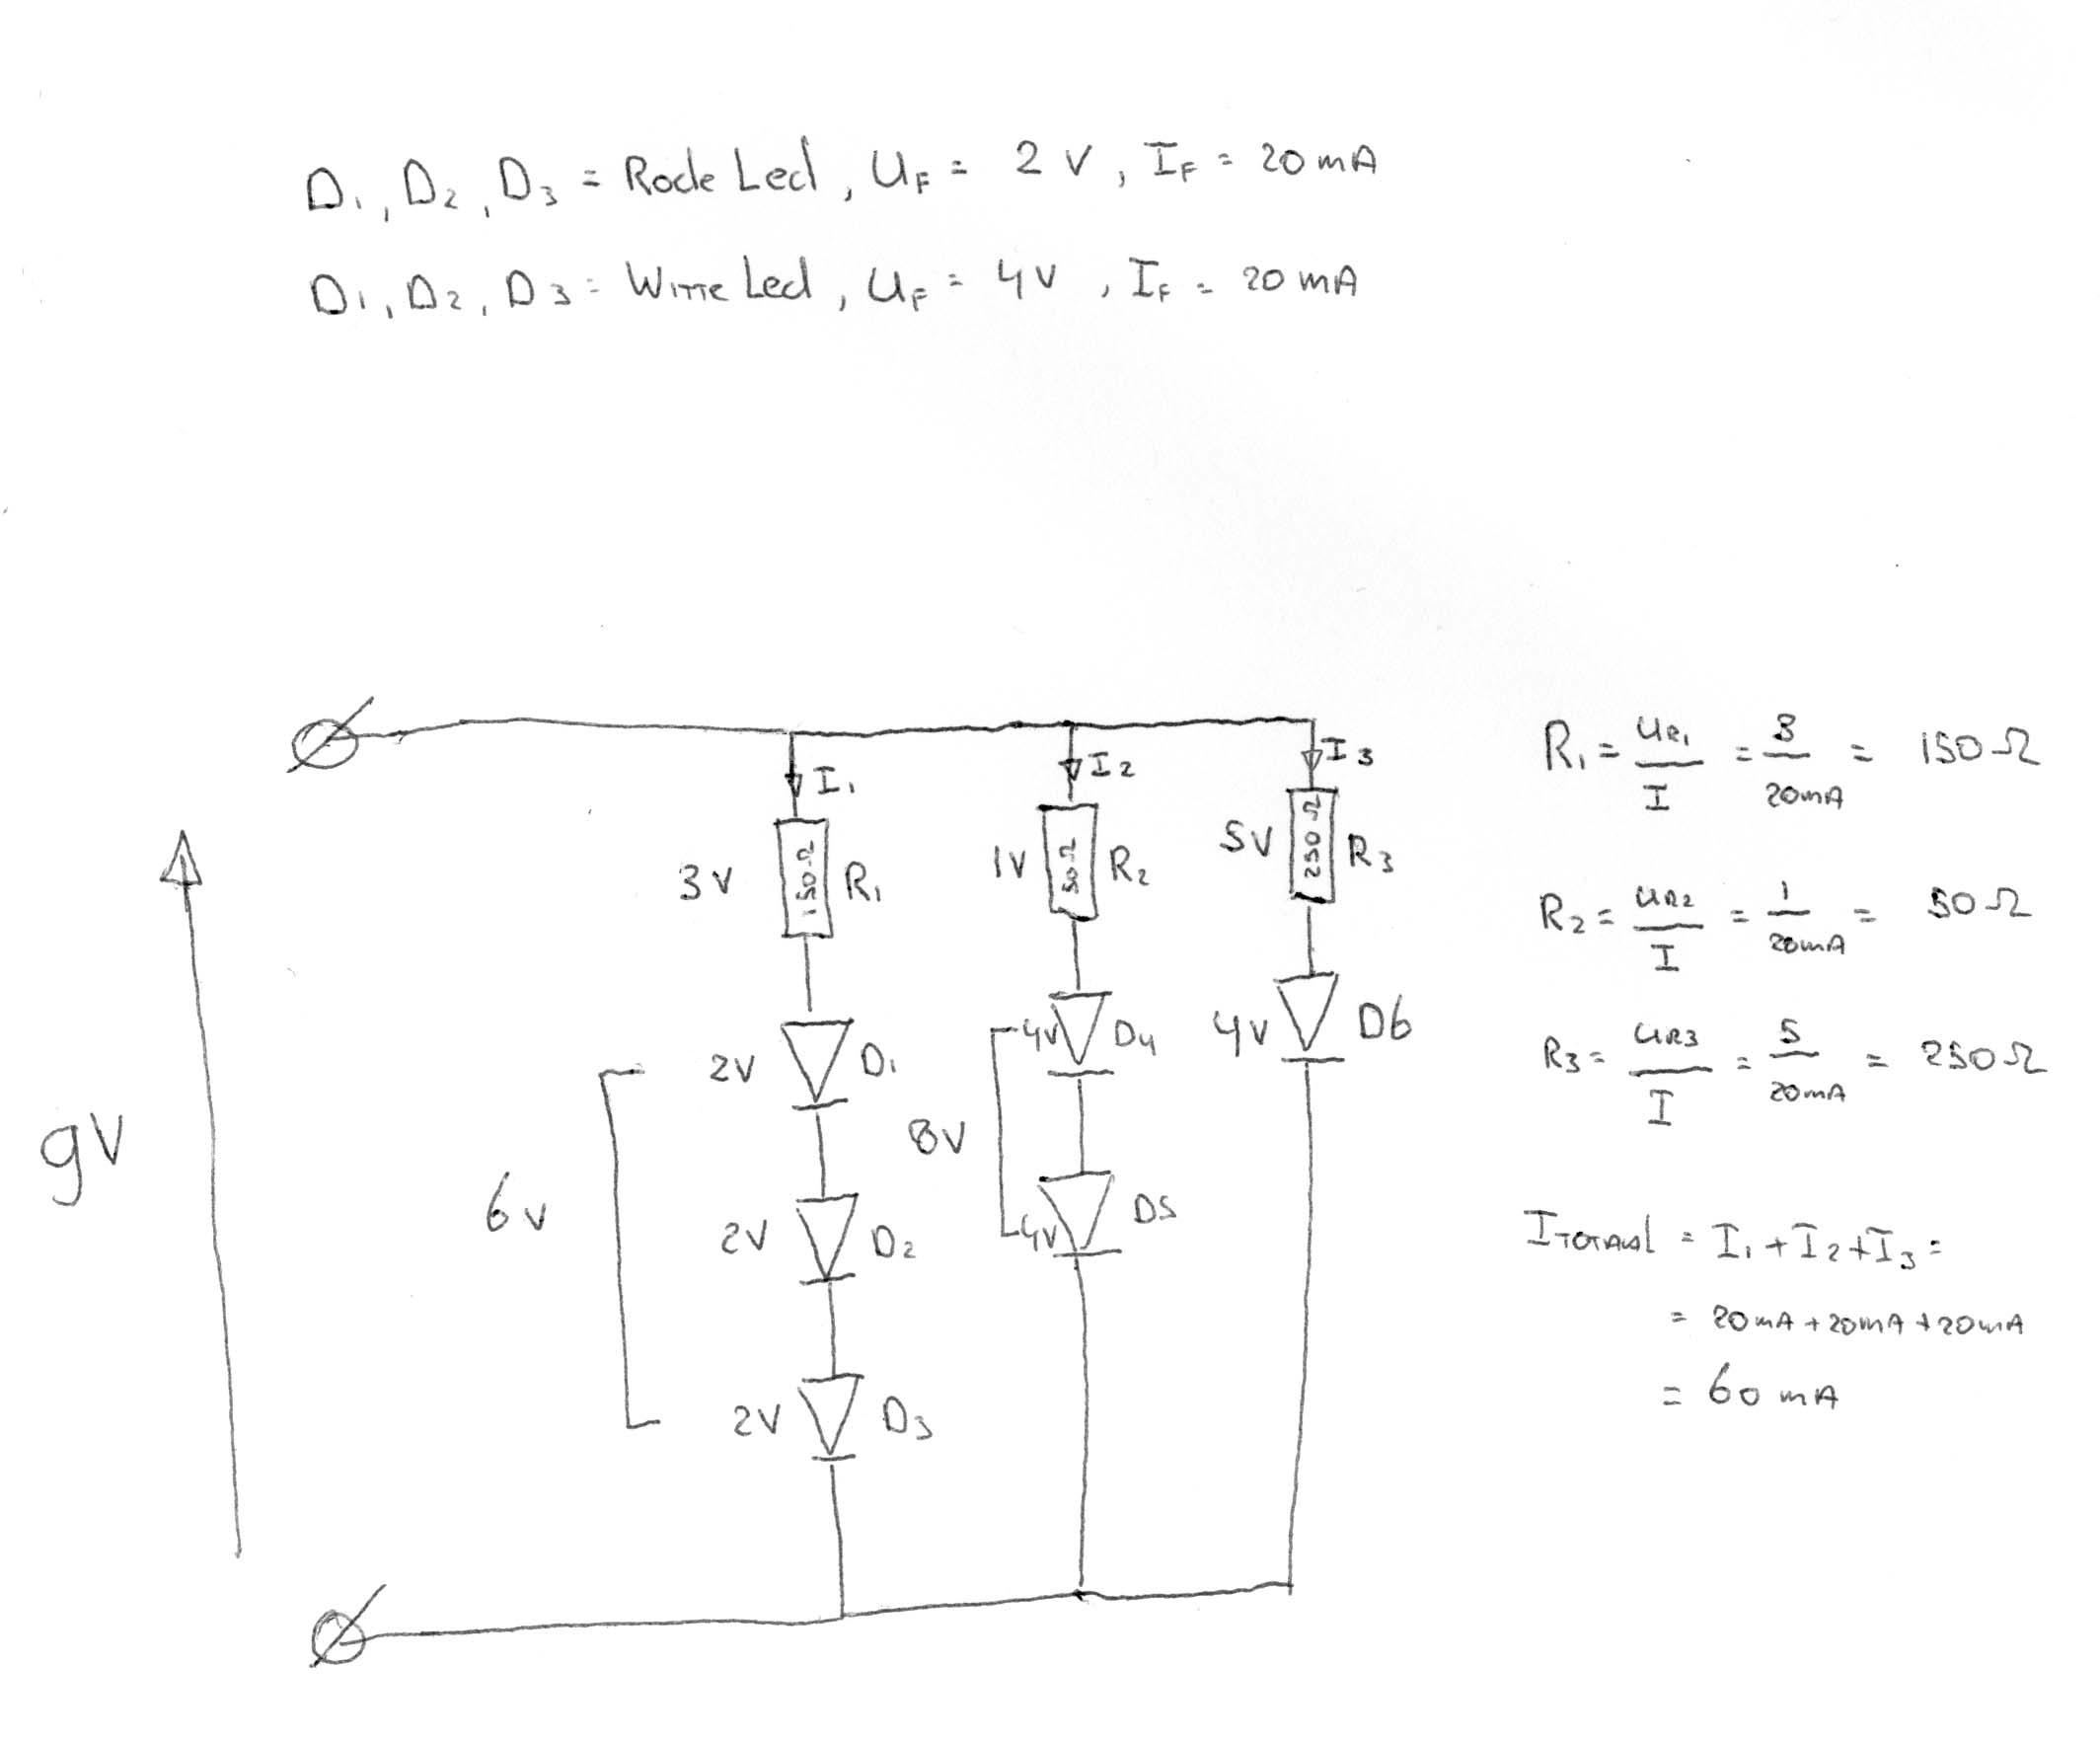 D₁, D₂, D₃ = Rode Led, U_F = 2 V, I_F = 20 mA
D₁, D₂, D₃ = Witte Led, U_F = 4 V, I_F = 20 mA
I₁
I₂
I₃
3 V
150 Ω
R₁
1 V
50 Ω
R₂
5 V
250 Ω
R₃
2V
D₁
4V
D₄
4V
D6
9V
6 V
8V
2V
D₂
4V
D5
2V
D₃
R₁ = U_R₁ / I = 3 / 20mA = 150 Ω
R₂ = U_R2 / I = 1 / 20mA = 50 Ω
R₃ = U_R3 / I = 5 / 20mA = 250 Ω
I_TOTAAL = I₁ + I₂ + I₃ =
= 20 mA + 20 mA + 20 mA
= 60 mA